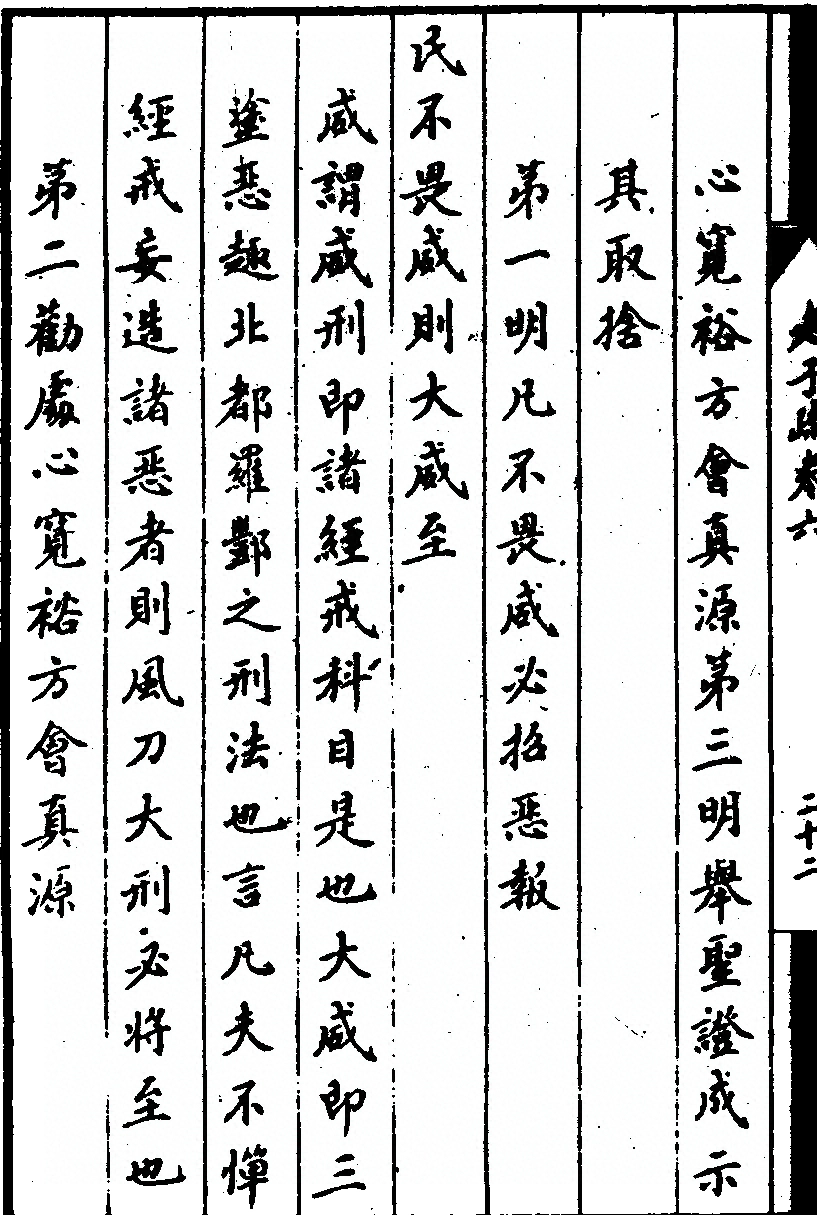 老子疏卷六
二十二
心寬裕方會真源第三明舉聖證成示
其取捨
第一明凡不畏威必招惡報
民不畏威則大威至
威謂威刑即諸經戒科目是也大威即三
塗惡趣北都羅酆之刑法也言凡夫不憚
經戒妄造諸惡者則風刀大刑必將至也
第二勸處心寬裕方會真源